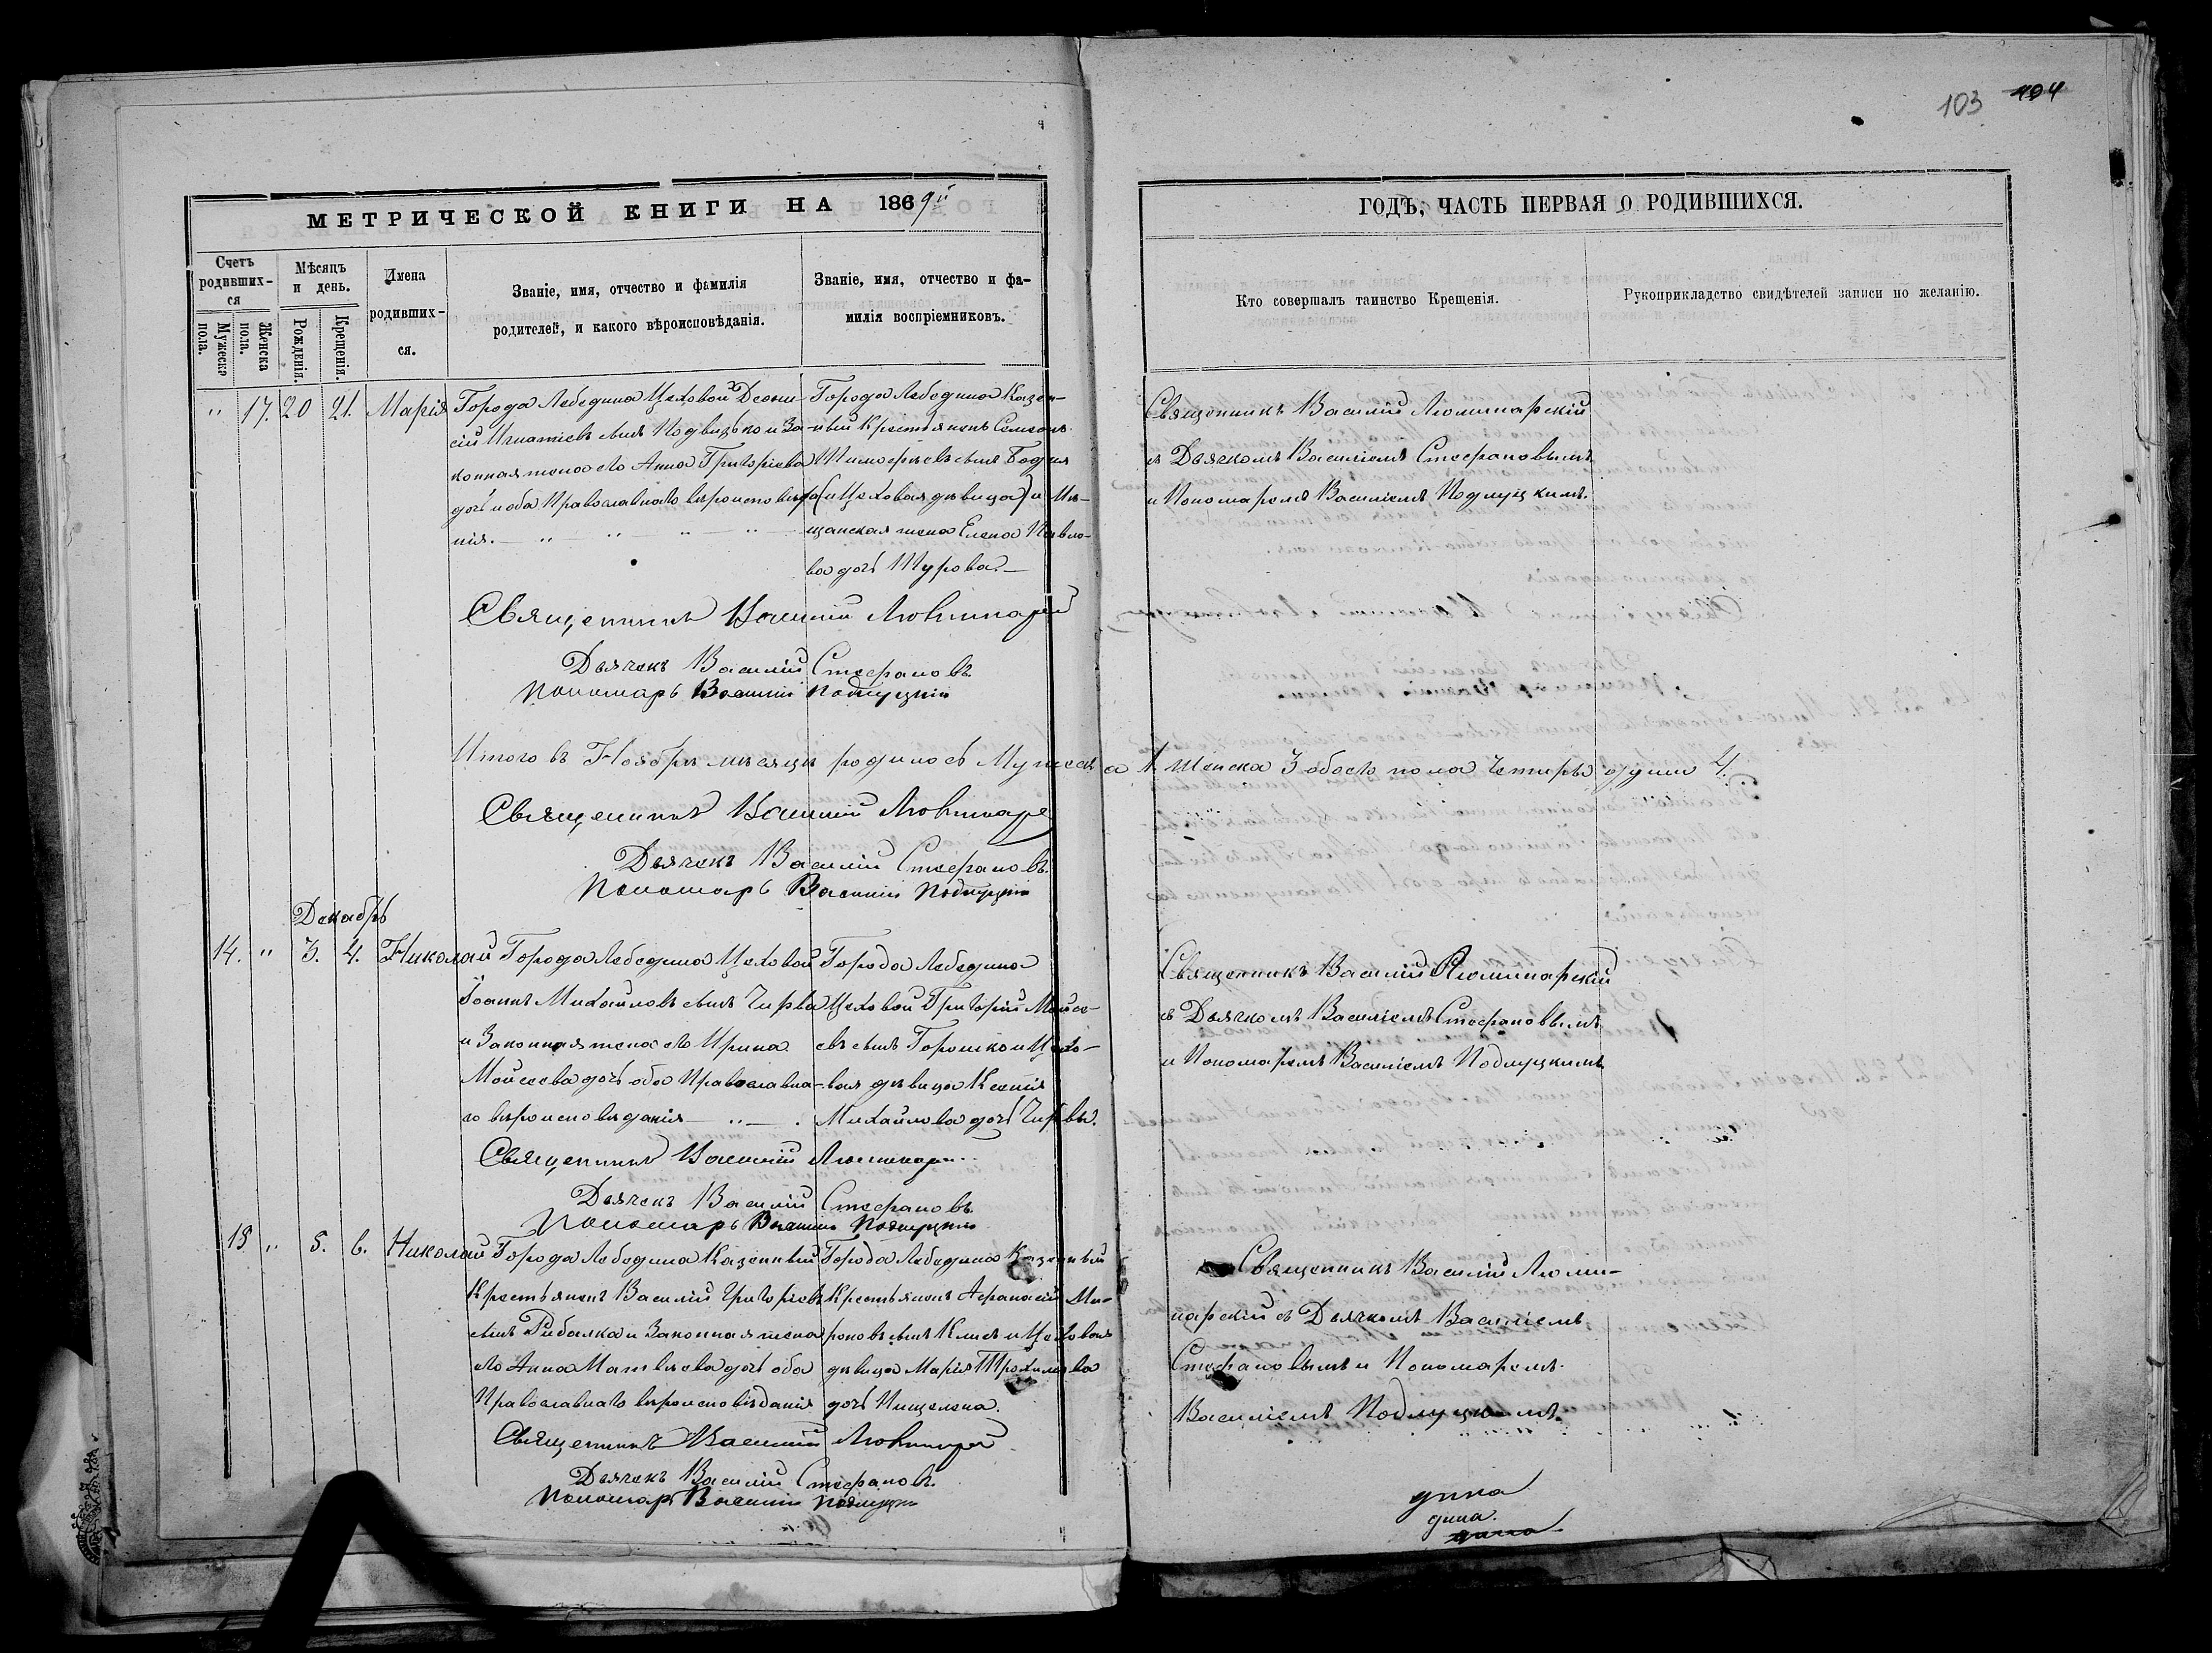 103 104
МЕТРИЧЕСКОЙ КНИГИ НА 1869й
ГОДЪ, ЧАСТЬ ПЕРВАЯ О РОДИВШИХСЯ.
Счетъ родивших-ся
Мужеска пола.
Женска пола.
Мѣсяцъ и день.
Рожденія.
Крещенія.
Имена родивших-ся.
Званіе, имя, отчество и фамилія
родителей, и какого вѣроисповѣданія.
Званіе, имя, отчество и фа-
милія воспріемниковъ.
Кто совершалъ таинство Крещенія.
Рукоприкладство свидѣтелей записи по желанію.
" 17. 20 21. Марія
Города Лебедина Цеховой Деони-
сій Игнатіевъ сынъ и За-
конная жена его Анна Григоріева
дочь оба Православнаго вѣроисповѣда
нія.
Города Лебедина Казен-
ный Крестьянинъ Симеонъ
Тимофѣевъ сынъ
(и Цеховая дѣвица) и Мѣ-
щанская жена Елена Павло-
ва дочь Шурова.
Священникъ Василій Люминарскій
съ Дьячкомъ Василіемъ Стефановымъ
и Пономаремъ Василіемъ Подлуцкимъ.
Священникъ Василій Люминарскій
Дьячекъ Василій Стефановъ
Пономарь Василій Подлуцкій
Итого въ Ноябрѣ мѣсяцѣ родилось Мужеска 1. Женска 3 обоего пола четыре души 4.
Священникъ Василій Люминар
Дьячекъ Василій Стефановъ.
Пономарь Василій Подлуцкій
Декабрь
14. " 3. 4. Николай
Города Лебедина Цеховой
Іоаннъ Михайловъ сынъ Чирва
и Законная жена его Ирина
Мойсеева дочь оба Православна-
го вѣроисповѣданія
Города Лебедина
Цеховой Григорій Мойсе-
евъ сынъ Горошко и Цехо-
вая дѣвица Ксенія
Михайлова дочь Чирвы.
Священникъ Василій Люминарскій
съ Дьячкомъ Василіемъ Стефановымъ
и Пономаремъ Василіемъ Подлуцкимъ
Священникъ Василій Люминар
Дьячекъ Василій Стефановъ
Пономарь Василій Подлуцкій
15 " 5. 6. Николай
Города Лебедина Казенный
Крестьянинъ Василій Григоріевъ
сынъ Рибалка и Законная жена
его Анна Матвѣева дочь оба
Православнаго вѣроисповѣданія
Города Лебедина Казенный
Крестьянинъ Афанасій Ми-
роновъ сынъ и Цеховая
дѣвица Марія Трохимова
дочь
Священникъ Василій Люми-
нарскій съ Дьячкомъ Василіемъ
Стефановымъ и Пономаремъ
Василіемъ Подлуцкимъ.
Священникъ Василій Люминар
Дьячекъ Василій Стефановъ.
Пономарь Василій Подлуцкій